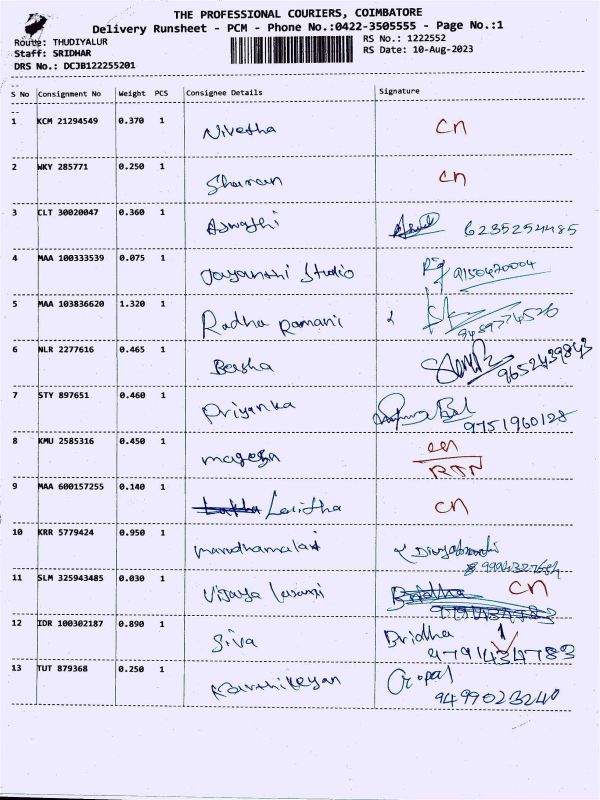 THE PROFESSIONAL COURIERS, COIMBATORE
Delivery Runsheet - PCM - Phone No.:0422-3505555 - Page No.:1
Route: THUDIYALUR
RS No.: 1222552
Staff: SRIDHAR
RS Date: 10-Aug-2023
DRS No.: DCJB122255201
S No Consignment No Weight PCS Consignee Details Signature
1 KCM 21294549 0.370 1 Nivetha cn
2 WKY 285771 0.250 1 Sharan cn
3 CLT 30020047 0.360 1 Aswathi 6235254485
4 MAA 100333539 0.075 1 Jayanthi Studio 9150470004
5 MAA 103836620 1.320 1 Radha Ramani 9489774526
6 NLR 2277616 0.465 1 Barsha 9652439843
7 STY 897651 0.460 1 Priyanka 9751960128
8 KMU 2585316 0.450 1 cn
RTN
9 MAA 600157255 0.140 1 Lalitha cn
10 KRR 5779424 0.950 1 marudhamalai
11 SLM 325943485 0.030 1 Vijaya cn
12 IDR 100302187 0.890 1 Siva Bridha
9791434783
13 TUT 879368 0.250 1 Karthikeyan Gopal
9499023240